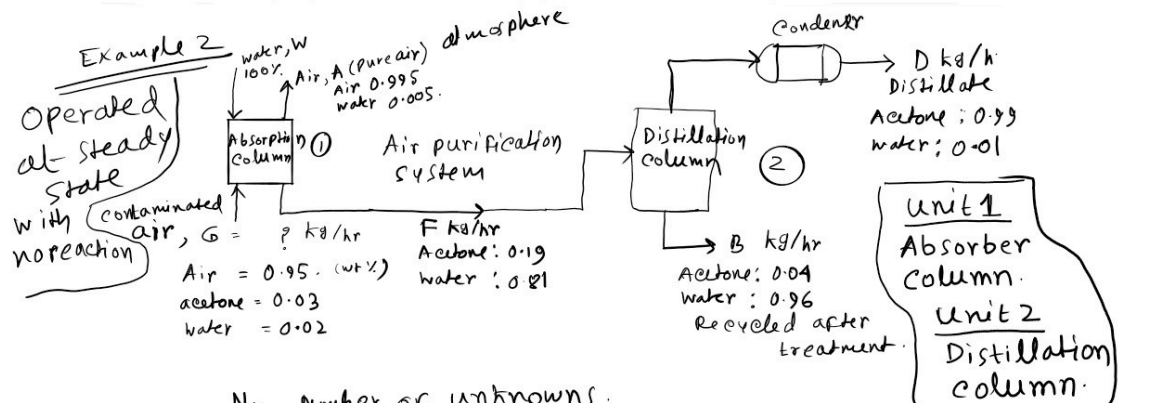 Example 2
Operated
at steady
state
with
no reaction
water, W
100%
Air, A (pure air) atmosphere
Air 0.995
water 0.005.
Absorption
column
①
Air purification
system
contaminated
air, G = ? kg/hr
Air = 0.95. (wt%)
acetone = 0.03
water = 0.02
F kg/hr
Acetone: 0.19
water: 0.81
Distillation
column
②
Condenser
D kg/h
Distillate
Acetone; 0.99
water; 0.01
B kg/hr
Acetone: 0.04
water: 0.96
Recycled after
treatment.
unit 1
Absorber
column.
unit 2
Distillation
column.
number or unknowns.